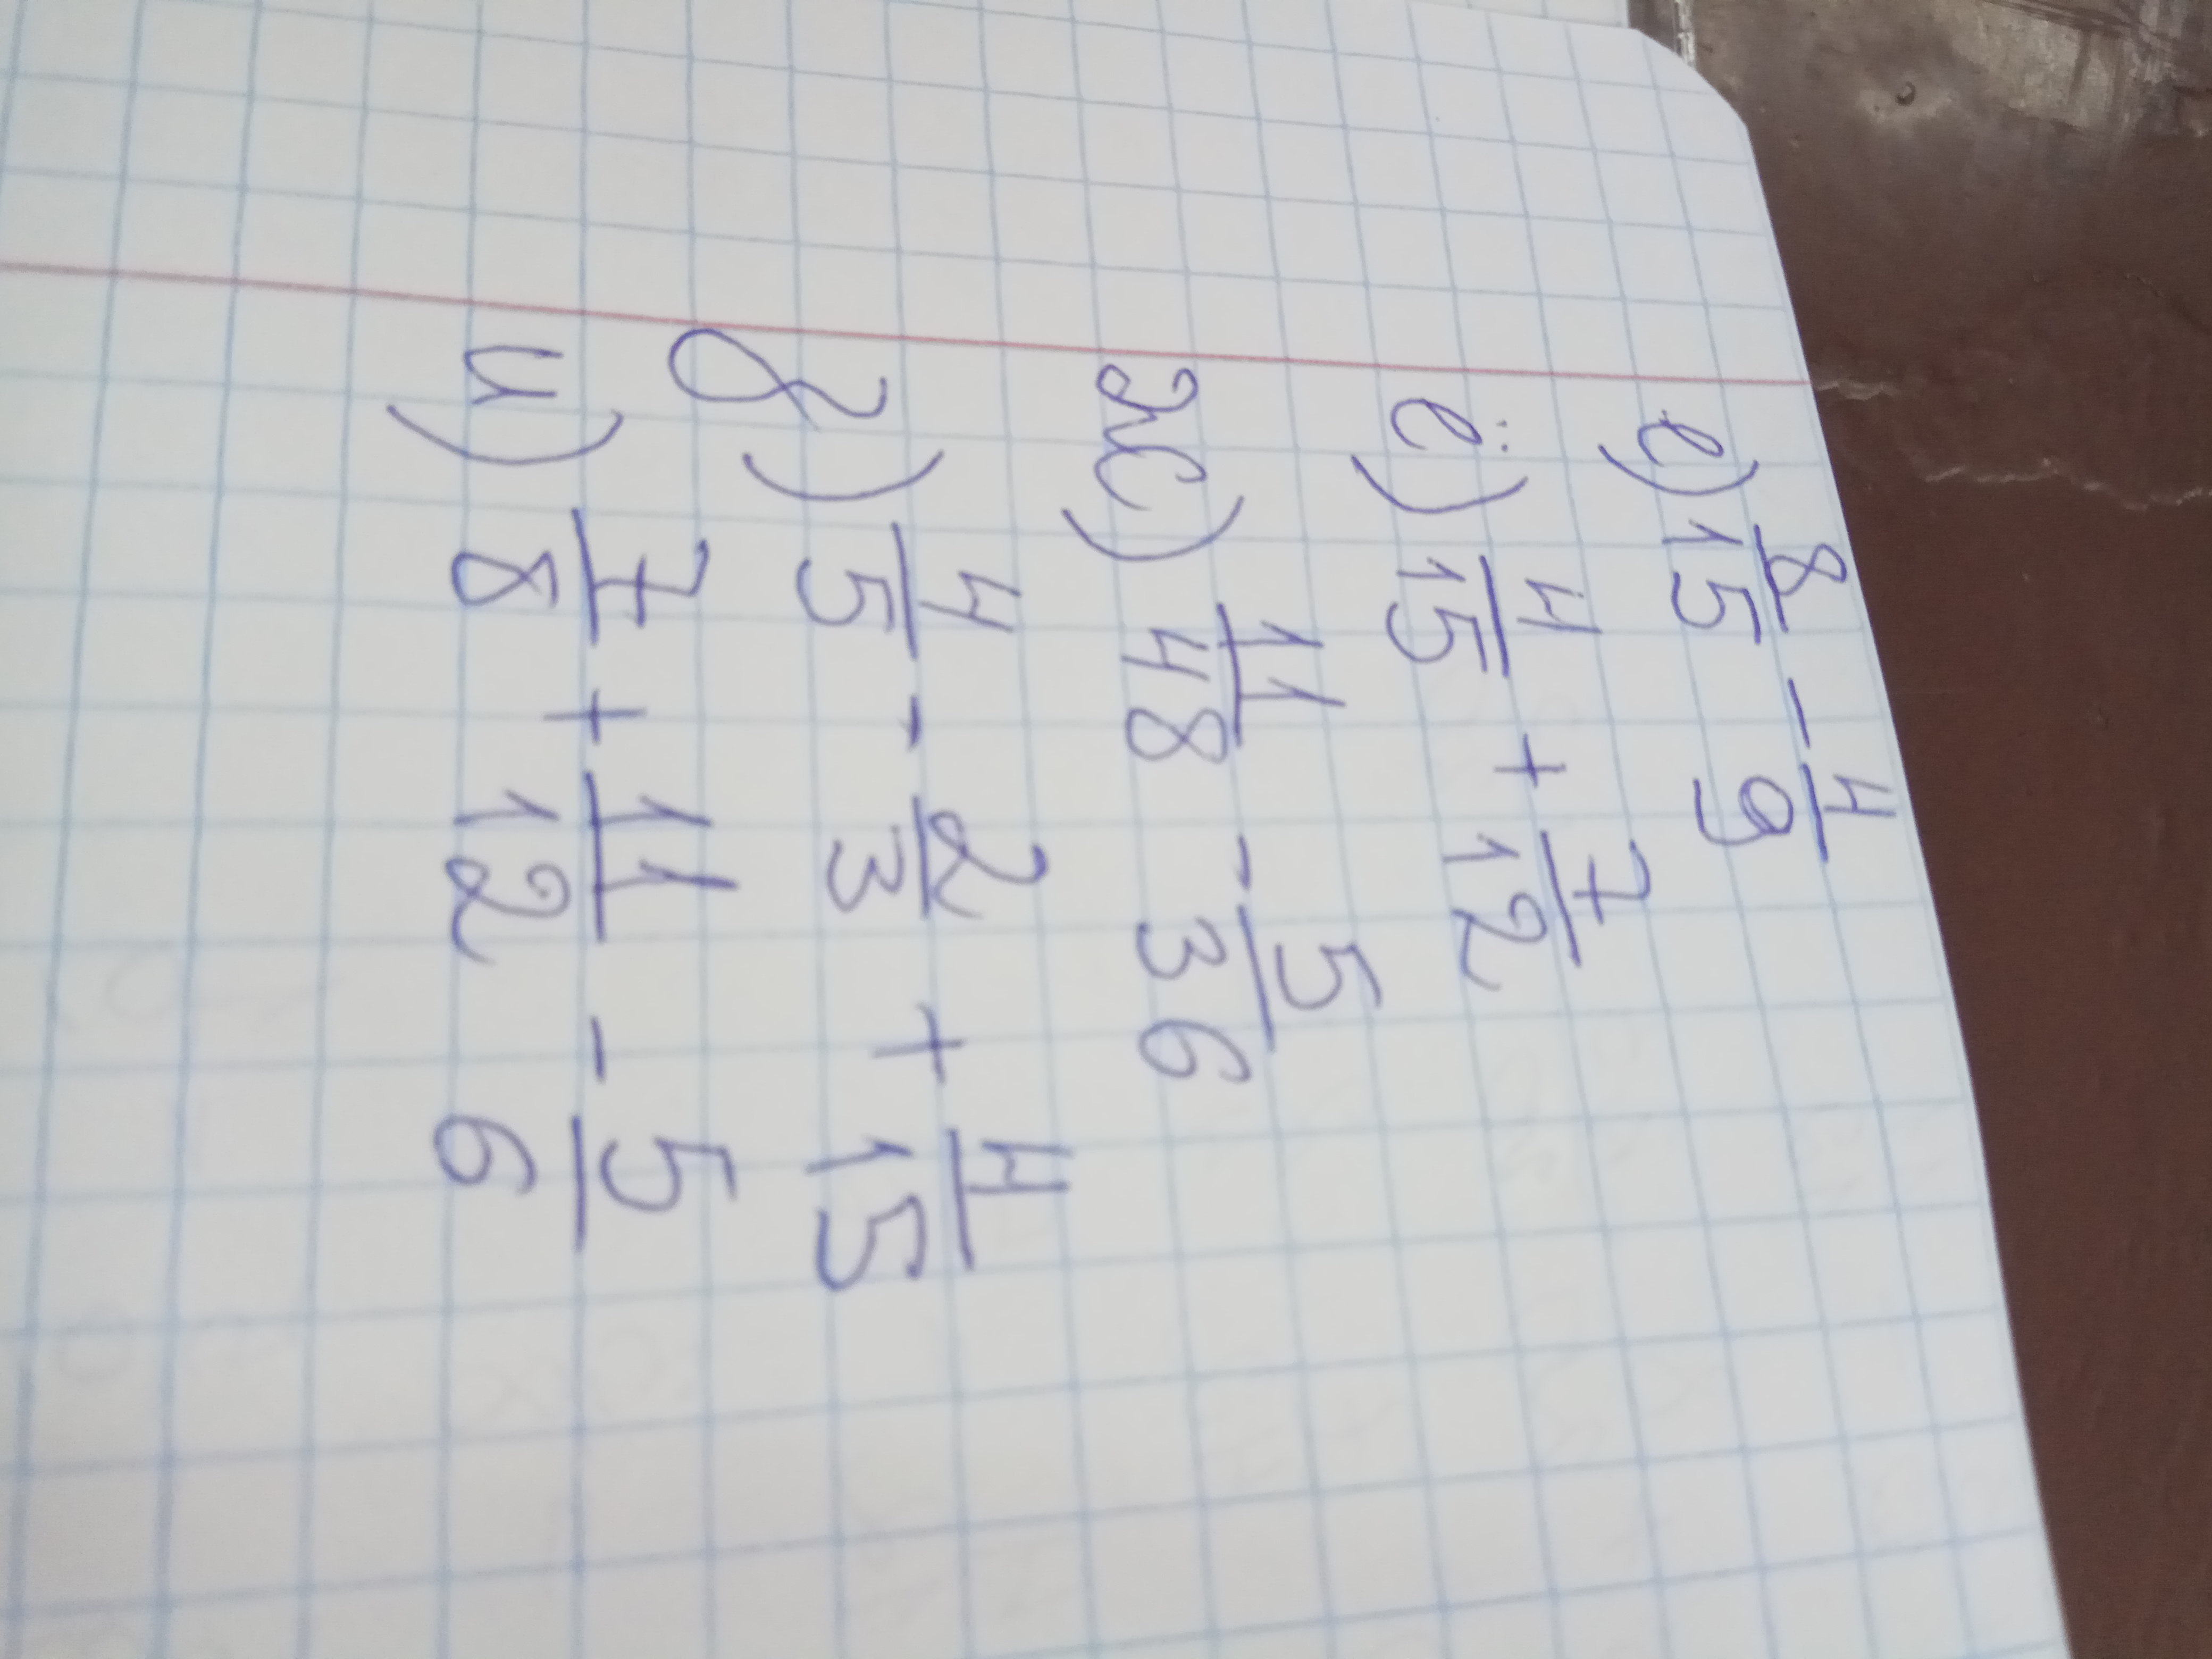 е) 8/15 - 4/9
ё) 4/15 + 7/12
ж) 11/48 - 5/36
з) 4/5 - 2/3 + 4/15
и) 7/8 + 11/12 - 5/6